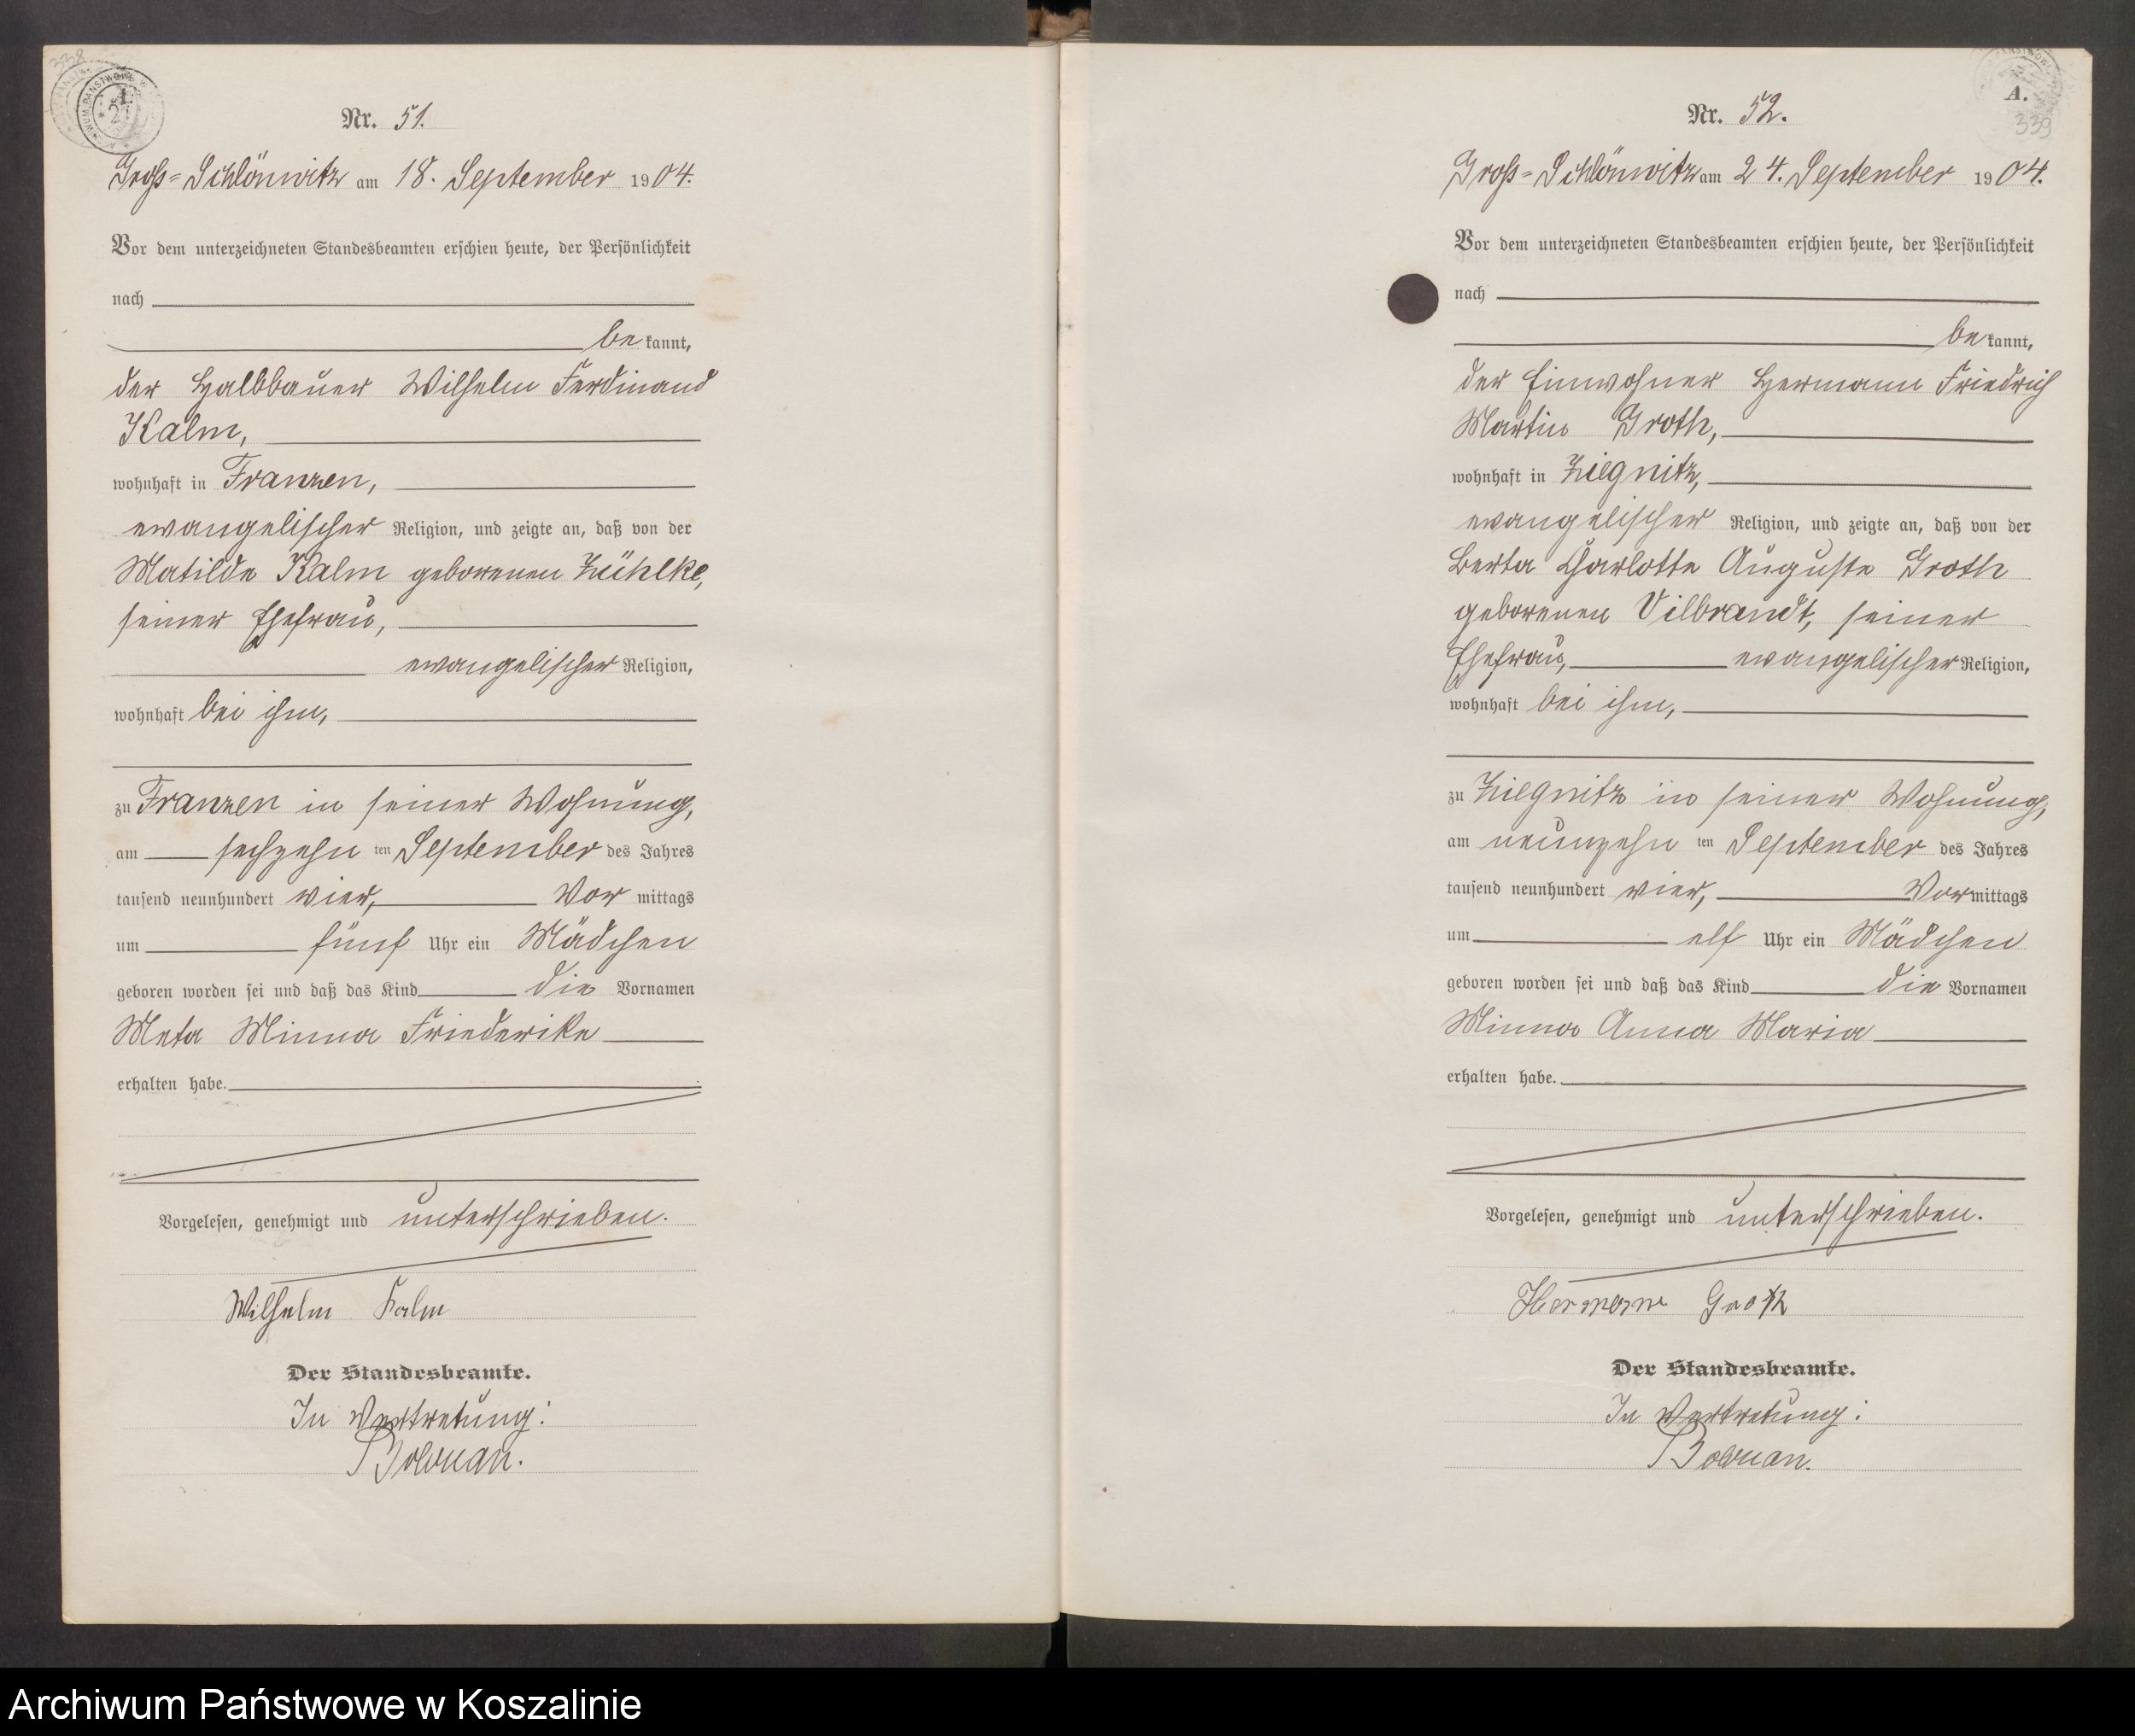 338
Nr. 51.
Groß-Schlönwitz am 18. September 1904.
Vor dem unterzeichneten Standesbeamten erschien heute, der Persönlichkeit
nach
bekannt,
der Halbbauer Wilhelm Ferdinand
Kalm,
wohnhaft in Franzen,
evangelischer Religion, und zeigte an, daß von der
Matilde Kalm geborenen Zühlke,
seiner Ehefrau,
evangelischer Religion,
wohnhaft bei ihm,
zu Franzen in seiner Wohnung,
am sechzehn ten September des Jahres
tausend neunhundert vier, Vor mittags
um fünf Uhr ein Mädchen
geboren worden sei und daß das Kind die Vornamen
Meta Minna Friederike
erhalten habe.
Vorgelesen, genehmigt und unterschrieben.
Wilhelm Kalm
Der Standesbeamte.
In Vertretung:
A.
339
Nr. 52.
Groß-Schlönwitz am 24. September 1904.
Vor dem unterzeichneten Standesbeamten erschien heute, der Persönlichkeit
nach
bekannt,
der Einwohner Hermann Friedrich
Martin Groth,
wohnhaft in Ziegnitz,
evangelischer Religion, und zeigte an, daß von der
Berta Charlotte Auguste Groth
geborenen Vilbrandt, seiner
Ehefrau, evangelischer Religion,
wohnhaft bei ihm,
zu Ziegnitz in seiner Wohnung,
am neunzehn ten September des Jahres
tausend neunhundert vier, Vormittags
um elf Uhr ein Mädchen
geboren worden sei und daß das Kind die Vornamen
Minna Anna Maria
erhalten habe.
Vorgelesen, genehmigt und unterschrieben.
Hermann Groth
Der Standesbeamte.
In Vertretung:
Archiwum Państwowe w Koszalinie